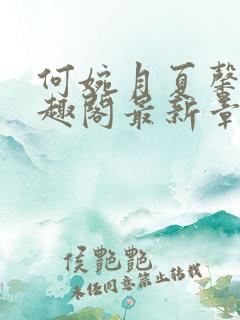 何婉月夏馨
趣阁最新章
侯艷艷
未任同意禁止转载